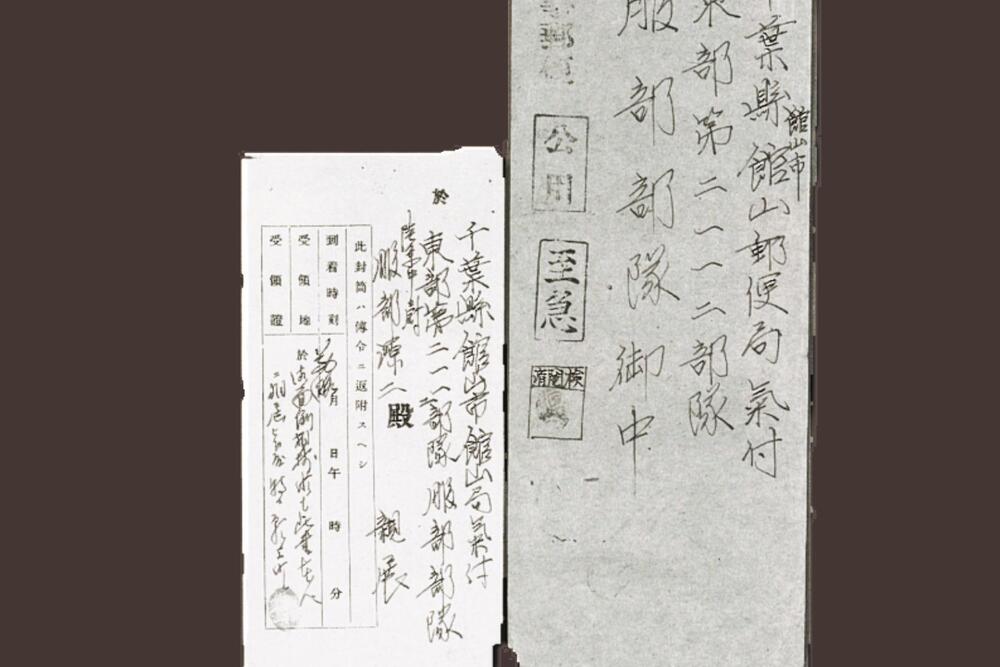 葉縣館山郵便局氣付
館山市
東部第二一一二部隊
服部部隊御中
郵便
公用
至急
檢閲濟
於
千葉縣館山市館山局氣付
東部第二一一二部隊服部部隊
陸軍中尉
服部諒二殿 親展
此封筒ハ傳令ニ返附スヘシ
到着時刻 月 日午 時 分
受領地 於
受領證